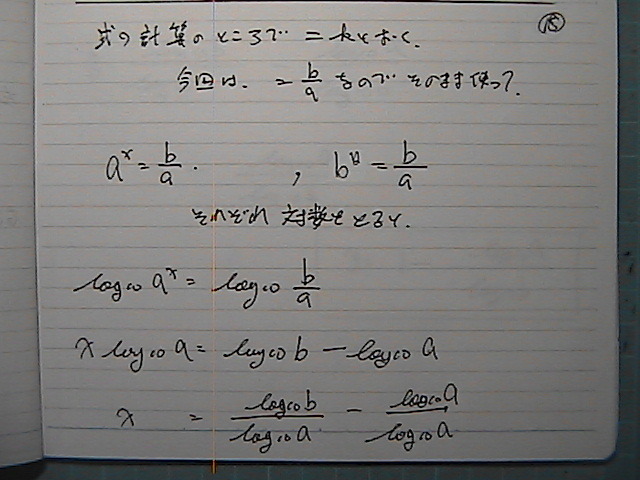 ⑮
式の計算のところで =kとおく.
今回は. = b/a なので そのまま使って.
a^x = b/a . , b^y = b/a
それぞれ 対数をとると.
log10 a^x = log10 b/a
x log10 a = log10 b − log10 a
x = log10 b / log10 a − log10 a / log10 a